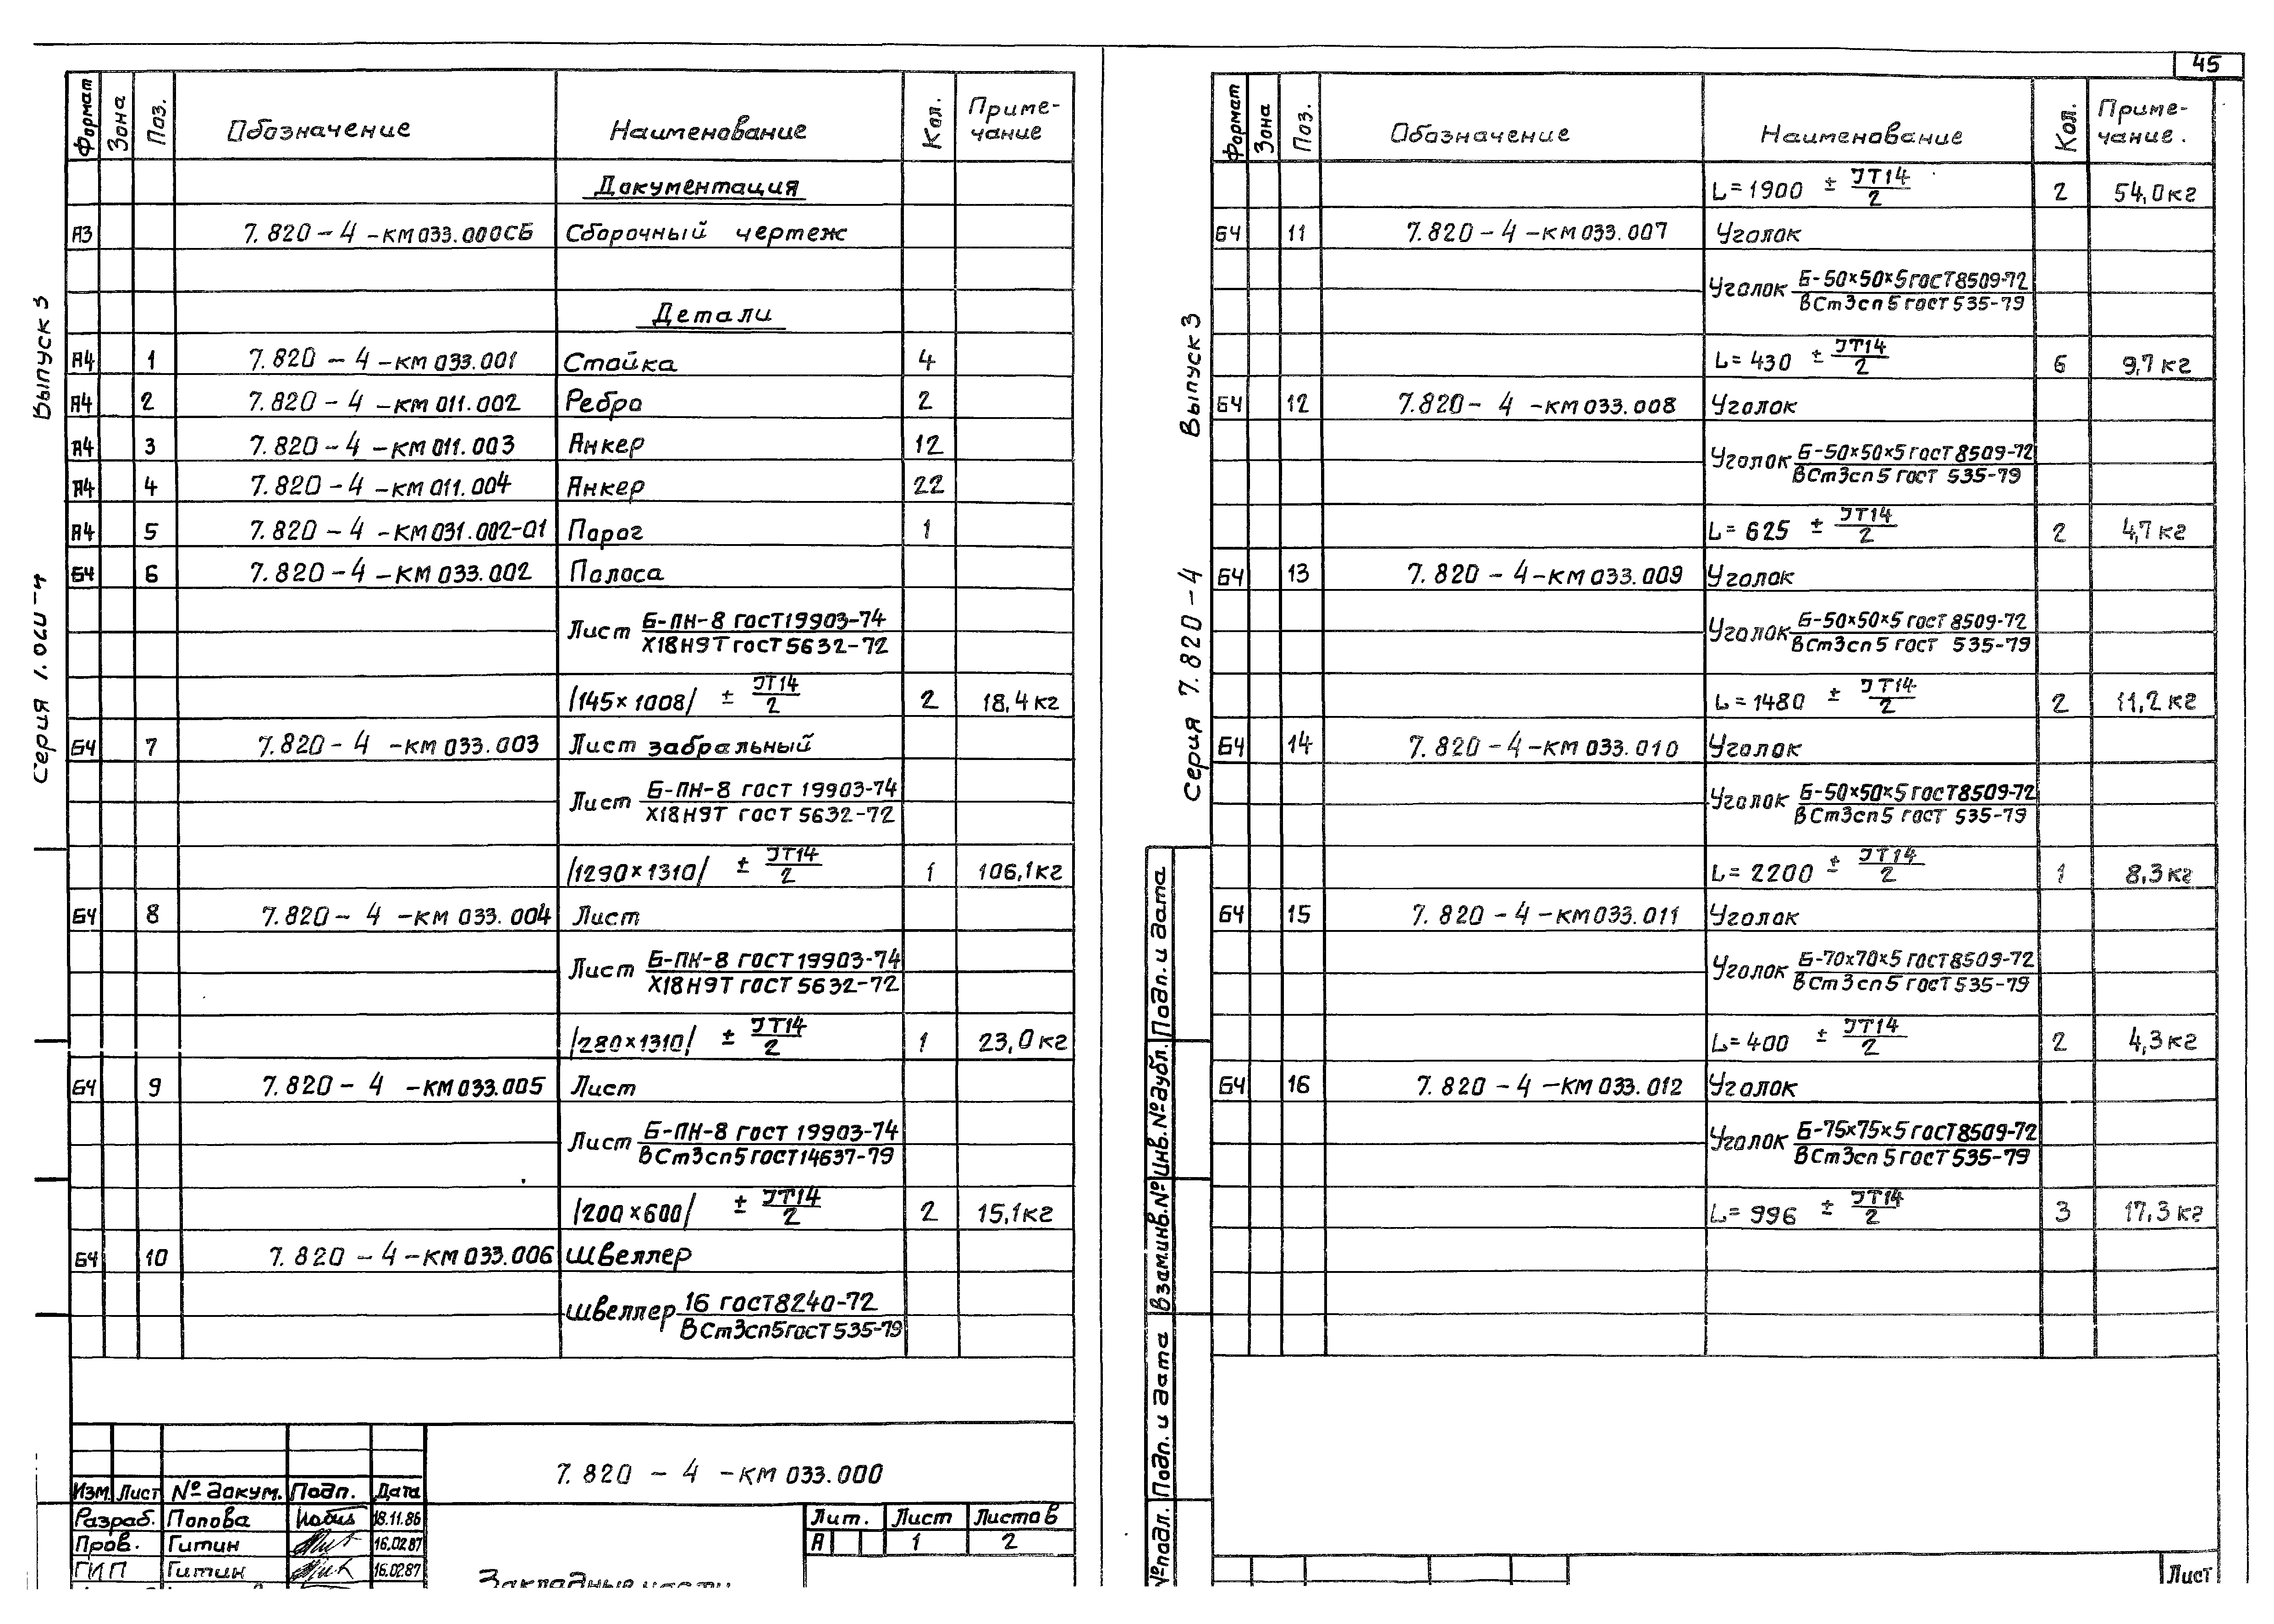 Выпуск 3
Серия 7.820-4
Формат Зона Поз. Обозначение Наименование Кол. Приме-
чание
Документация
А3 7.820-4-КМ033.000СБ Сборочный чертеж
Детали
А4 1 7.820-4-КМ033.001 Стойка 4
А4 2 7.820-4-КМ011.002 Ребро 2
А4 3 7.820-4-КМ011.003 Анкер 12
А4 4 7.820-4-КМ011.004 Анкер 22
А4 5 7.820-4-КМ031.002-01 Порог 1
БЧ 6 7.820-4-КМ033.002 Полоса
Б-ПН-8 ГОСТ19903-74
Лист
Х18Н9Т ГОСТ5632-72
/145×1008/ ± JT14/2 2 18,4кг
БЧ 7 7.820-4-КМ033.003 Лист забральный
Б-ПН-8 ГОСТ 19903-74
Лист
Х18Н9Т ГОСТ 5632-72
/1290×1310/ ± JT14/2 1 106,1кг
БЧ 8 7.820-4-КМ033.004 Лист
Б-ПН-8 ГОСТ19903-74
Лист
Х18Н9Т ГОСТ5632-72
/280×1310/ ± JT14/2 1 23,0кг
БЧ 9 7.820-4-КМ033.005 Лист
Б-ПН-8 ГОСТ 19903-74
Лист
ВСт3сп5ГОСТ14637-79
/200×600/ ± JT14/2 2 15,1кг
БЧ 10 7.820-4-КМ033.006 Швеллер
16 ГОСТ8240-72
Швеллер
ВСт3сп5ГОСТ535-79
7.820-4-КМ033.000
Изм. Лист № докум. Подп. Дата
Разраб. Попова 18.11.86
Пров. Гитин 16.02.87
ГИП Гитин 16.02.87
Лит. Лист Листов
А 1 2
Закладные части
45
Выпуск 3
Серия 7.820-4
Формат Зона Поз. Обозначение Наименование Кол. Приме-
чание.
L=1900 ± JT14/2 2 54,0кг
БЧ 11 7.820-4-КМ033.007 Уголок
Б-50×50×5ГОСТ8509-72
Уголок
ВСт3сп5 ГОСТ 535-79
L=430 ± JT14/2 6 9,7кг
БЧ 12 7.820-4-КМ033.008 Уголок
Б-50×50×5 ГОСТ8509-72
Уголок
ВСт3сп5 ГОСТ 535-79
L=625 ± JT14/2 2 4,7кг
БЧ 13 7.820-4-КМ033.009 Уголок
Б-50×50×5 ГОСТ8509-72
Уголок
ВСт3сп5 ГОСТ 535-79
L=1480 ± JT14/2 2 11,2кг
БЧ 14 7.820-4-КМ033.010 Уголок
Б-50×50×5ГОСТ8509-72
Уголок
ВСт3сп5 ГОСТ 535-79
L=2200 ± JT14/2 1 8,3кг
БЧ 15 7.820-4-КМ033.011 Уголок
Б-70×70×5 ГОСТ8509-72
Уголок
ВСт3сп5 ГОСТ535-79
L=400 ± JT14/2 2 4,3кг
БЧ 16 7.820-4-КМ033.012 Уголок
Б-75×75×5ГОСТ8509-72
Уголок
ВСт3сп5ГОСТ535-79
L=996 ± JT14/2 3 17,3кг
Подп. и дата
Инв.№дубл.
Взам.инв.№
Подп. и дата
№подл.
Лист